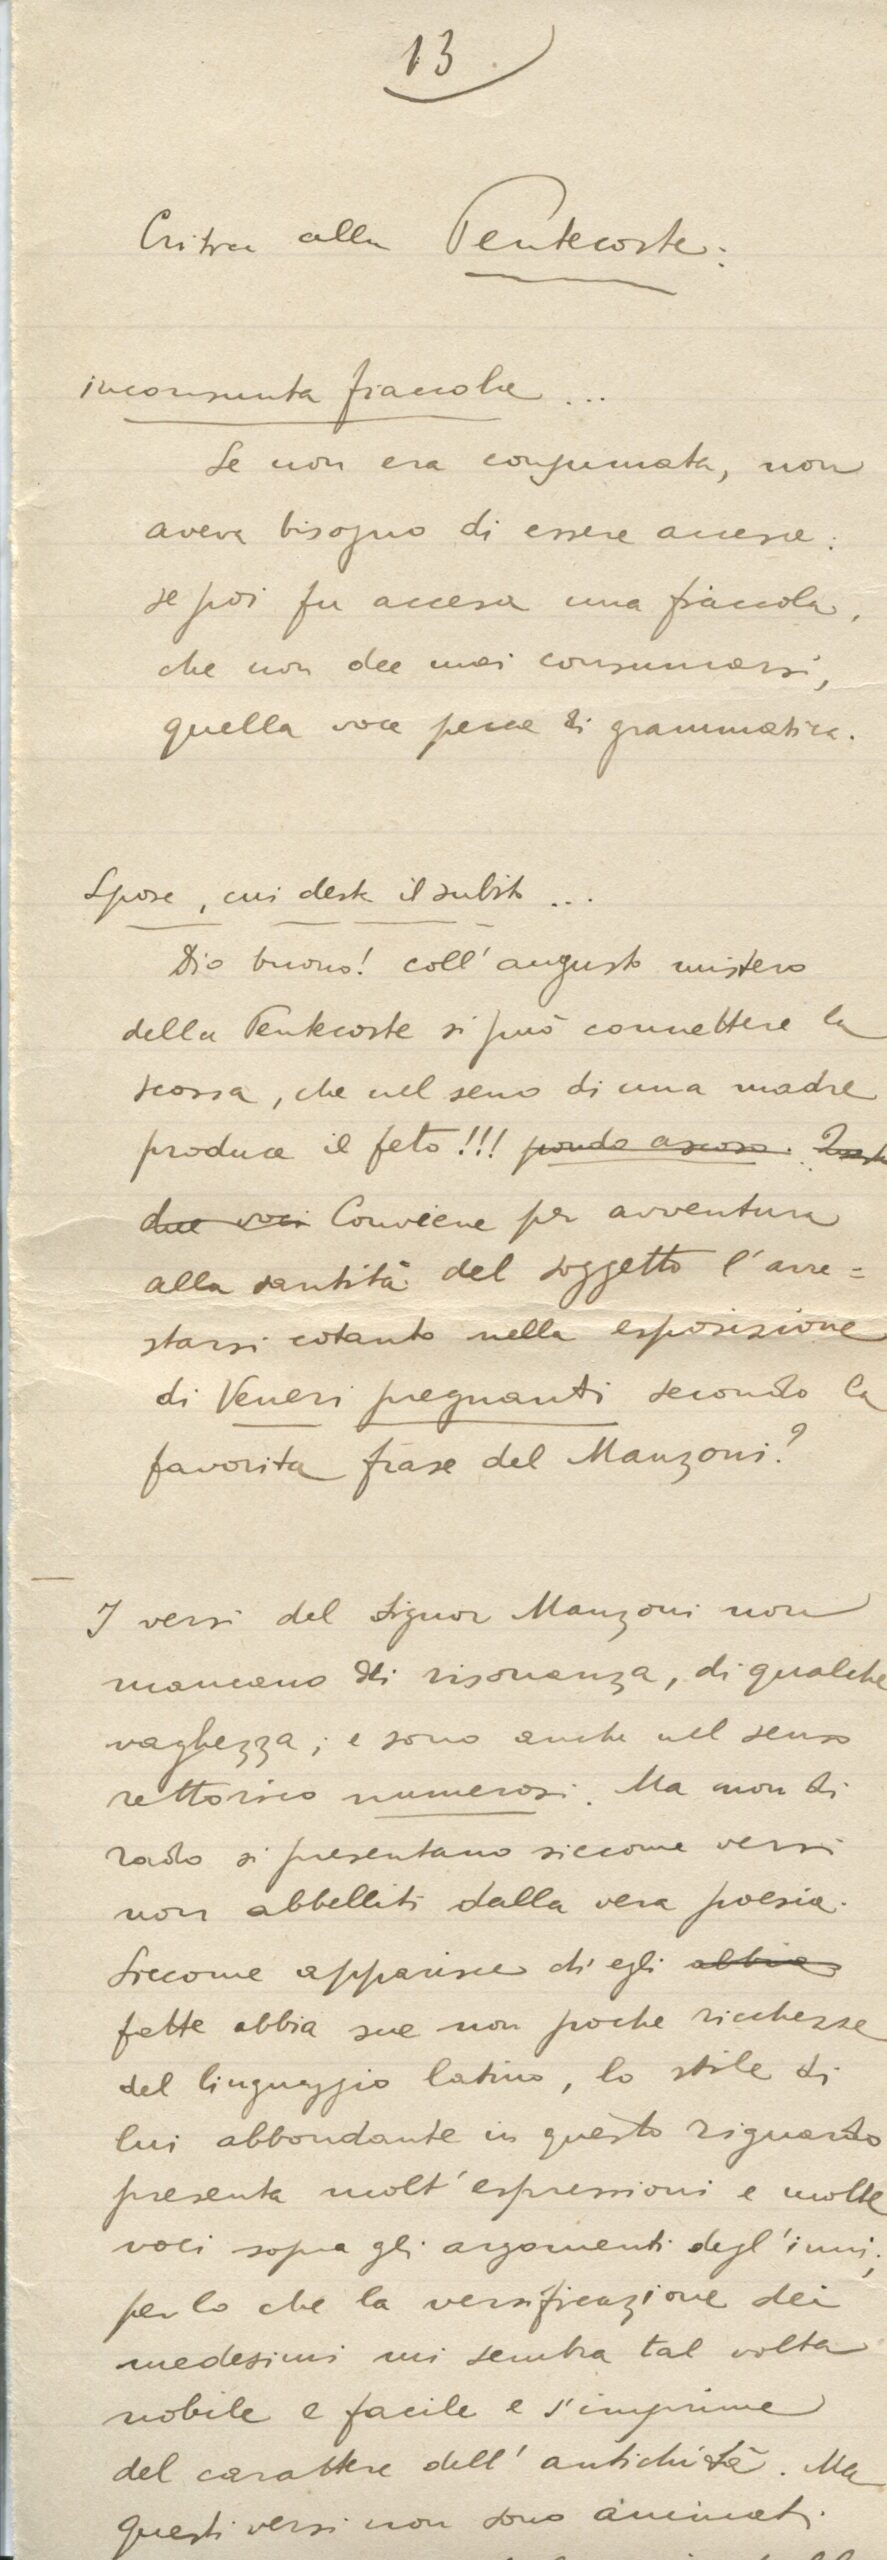 13
Critica alla Pentecoste:
inconsunta fiaccola ...
Se non era consumata, non
aveva bisogno di essere accesa:
se poi fu accesa una fiaccola,
che non dee mai consumarsi,
quella voce pecca di grammatica.
Spose, cui desta il subito ...
Dio buono! coll'augusto mistero
della Pentecoste si può connettere la
scossa, che nel seno di una madre
produce il feto!!! pondo ascoso. Queste
due voci Conviene per avventura
alla santità del soggetto l'arre=
starsi cotanto nella esposizione
di Veneri pregnanti secondo la
favorita frase del Manzoni?
I versi del Signor Manzoni non
mancano di risonanza, di qualche
vaghezza; e sono anche nel senso
rettorico numerosi. Ma non di
rado si presentano siccome versi
non abbelliti dalla vera poesia.
Siccome apparisce ch'egli abbia
fatte abbia sue non poche ricchezze
del linguaggio latino, lo stile di
lui abbondante in questo riguardo
presenta molt'espressioni e molte
voci sopra gli argomenti degl'inni;
per lo che la versificazione dei
medesimi mi sembra tal volta
nobile e facile e s'imprime
del carattere dell'antichità. Ma
questi versi non sono animati